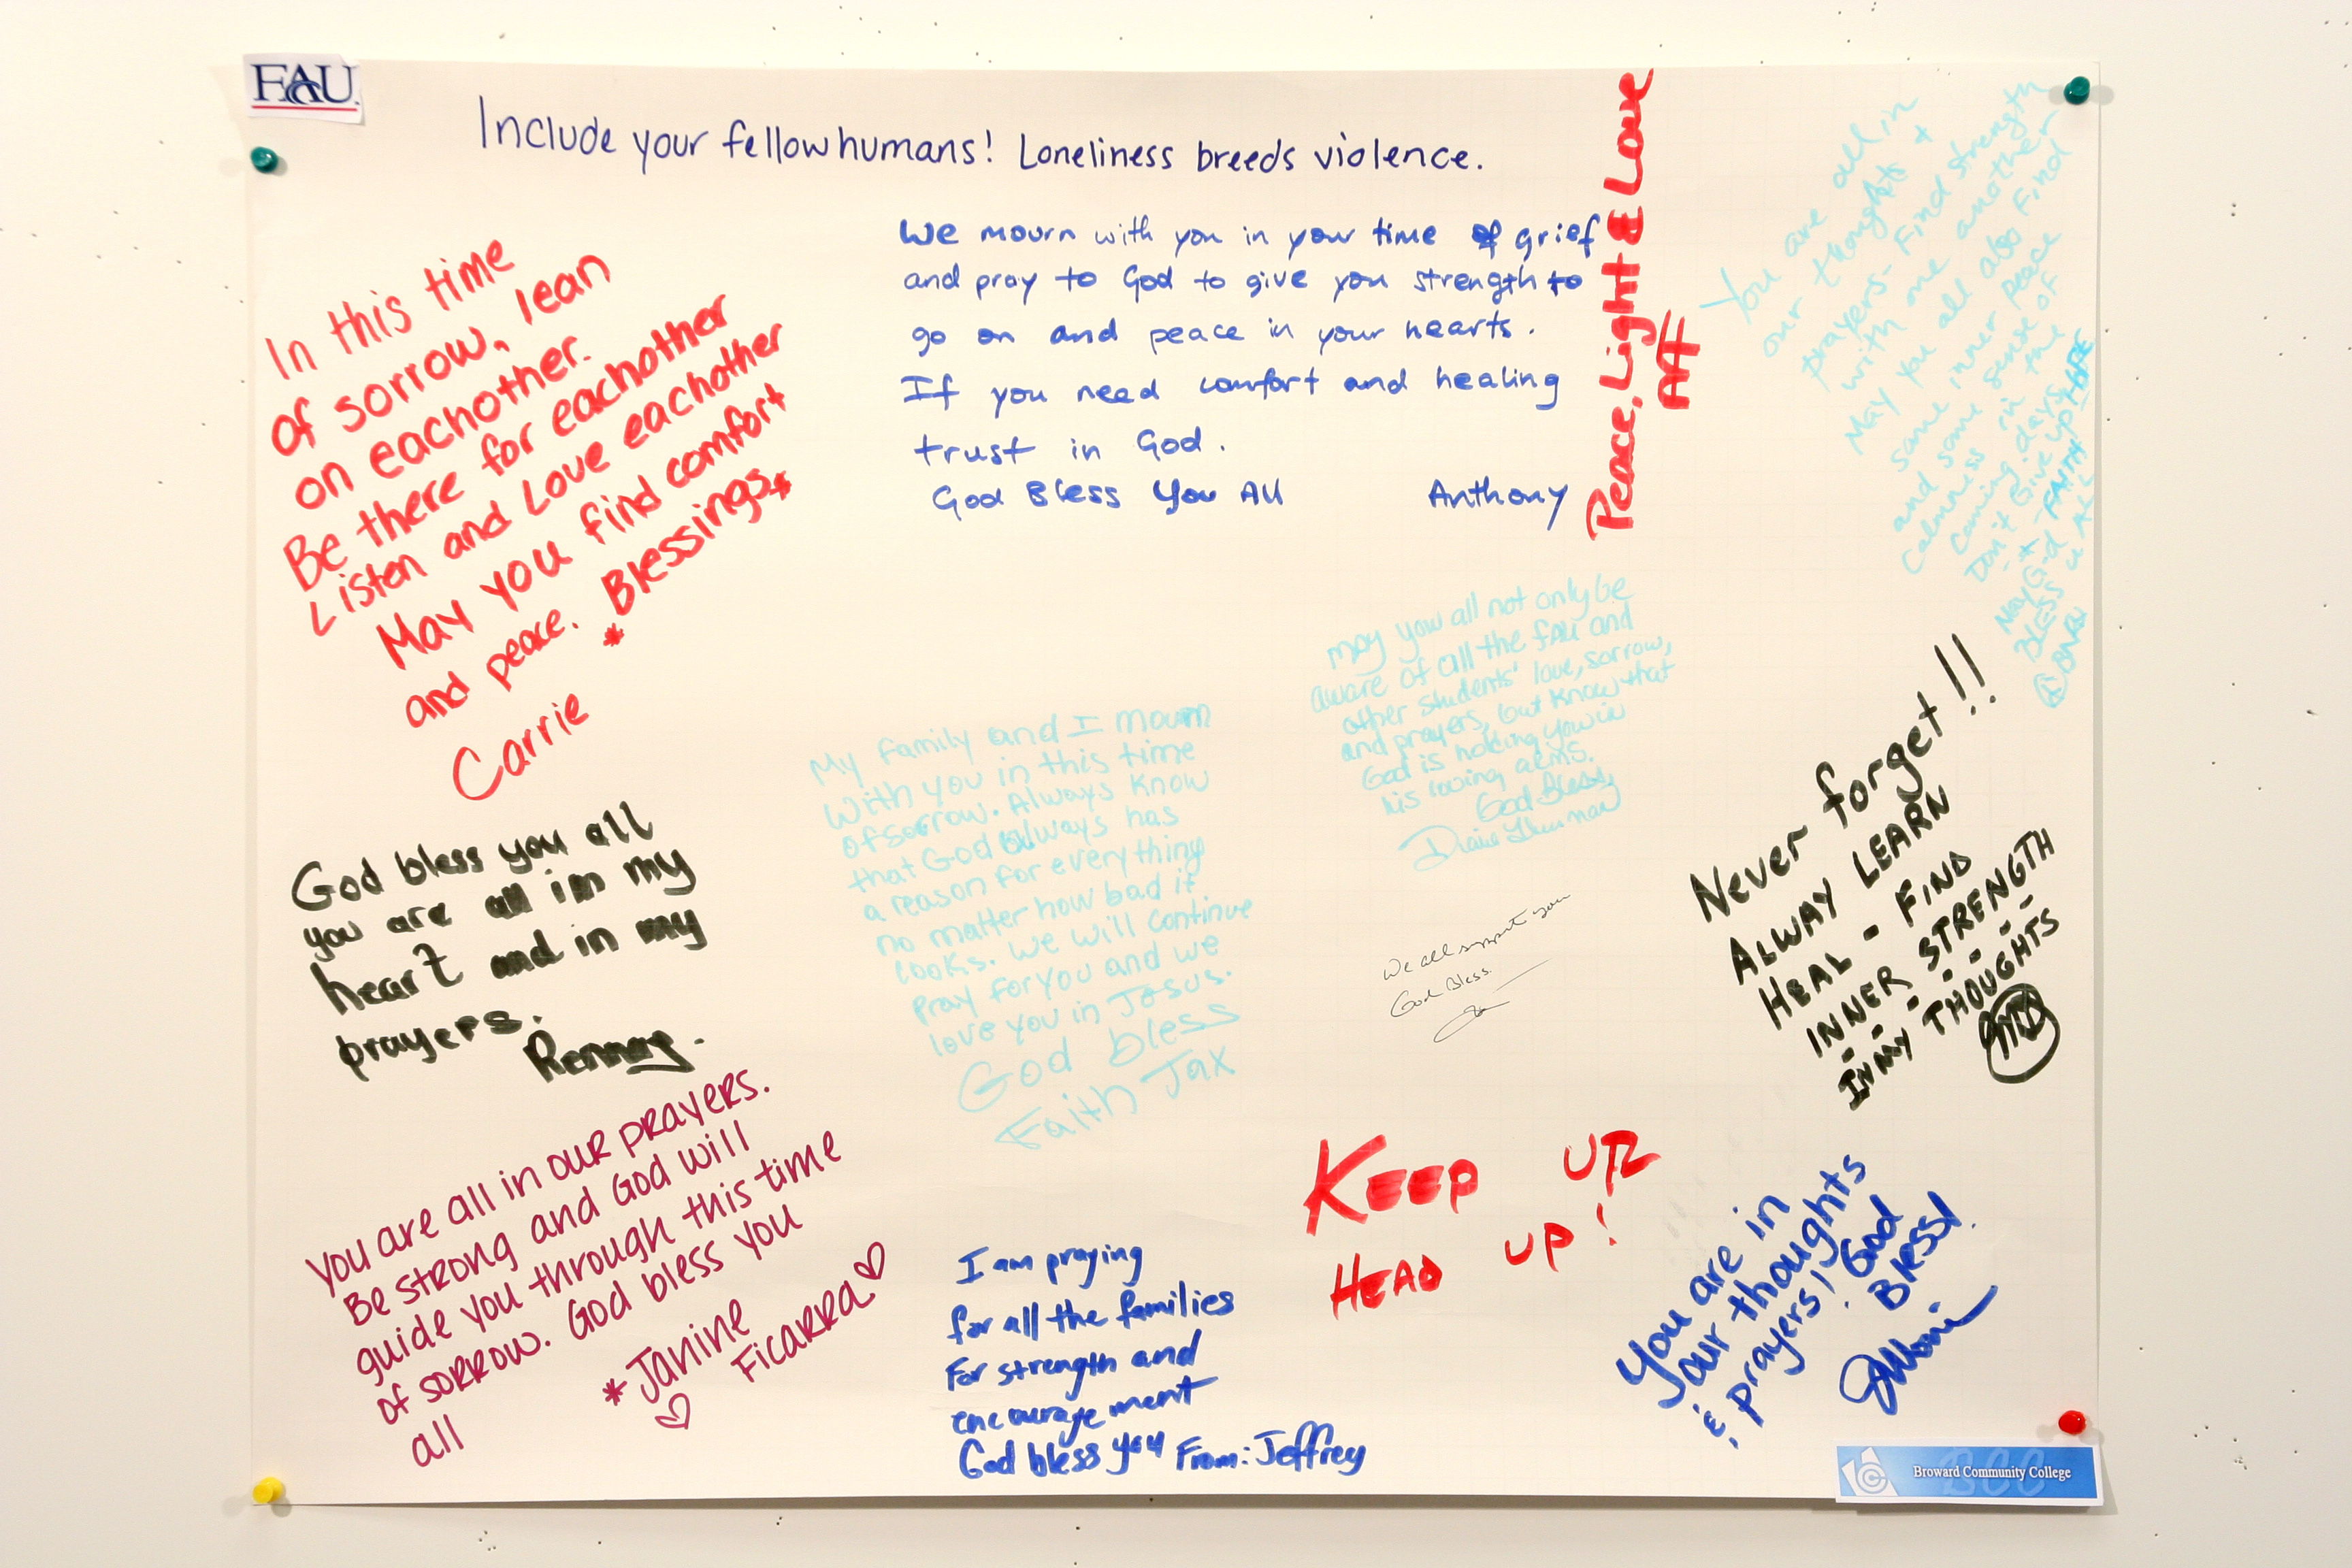 FAU
Include your fellow humans! Loneliness breeds violence.
In this time
of sorrow, lean
on eachother.
Be there for eachother
Listen and Love eachother
May you find comfort
and peace. * Blessings *
Carrie
We mourn with you in your time of grief
and pray to God to give you strength to
go on and peace in your hearts.
If you need comfort and healing
trust in God.
God Bless You All Anthony
Peace, Light & Love
You are all in
our thoughts +
prayers - Find strength
with one another
May you all also find
some inner peace
and some sense of
calmness in the
coming days
Don't Give up HOPE
FAITH
May God
BLESS ALL
may you all not only be
aware of all the FAU and
other students' love, sorrow,
and prayers, but know that
God is holding you in
his loving arms.
God Bless,
My family and I mourn
With you in this time
of sorrow. Always know
that God always has
a reason for everything
no matter how bad it
looks. We will continue
pray for you and we
love you in Jesus.
God bless
Faith Jax
God bless you all
you are all in my
heart and in my
prayers.
We all support you
God Bless.
Never forget!!
ALWAY LEARN
HEAL - FIND
INNER STRENGTH
IN MY THOUGHTS
You are all in our prayers.
Be strong and God will
guide you through this time
of sorrow. God bless you
all
* Janine
Ficarra
I am praying
for all the families
For strength and
encouragement
God bless you From: Jeffrey
KEEP UR
HEAD UP!
You are in
our thoughts
& prayers! God
Bless!
Broward Community College
BCC